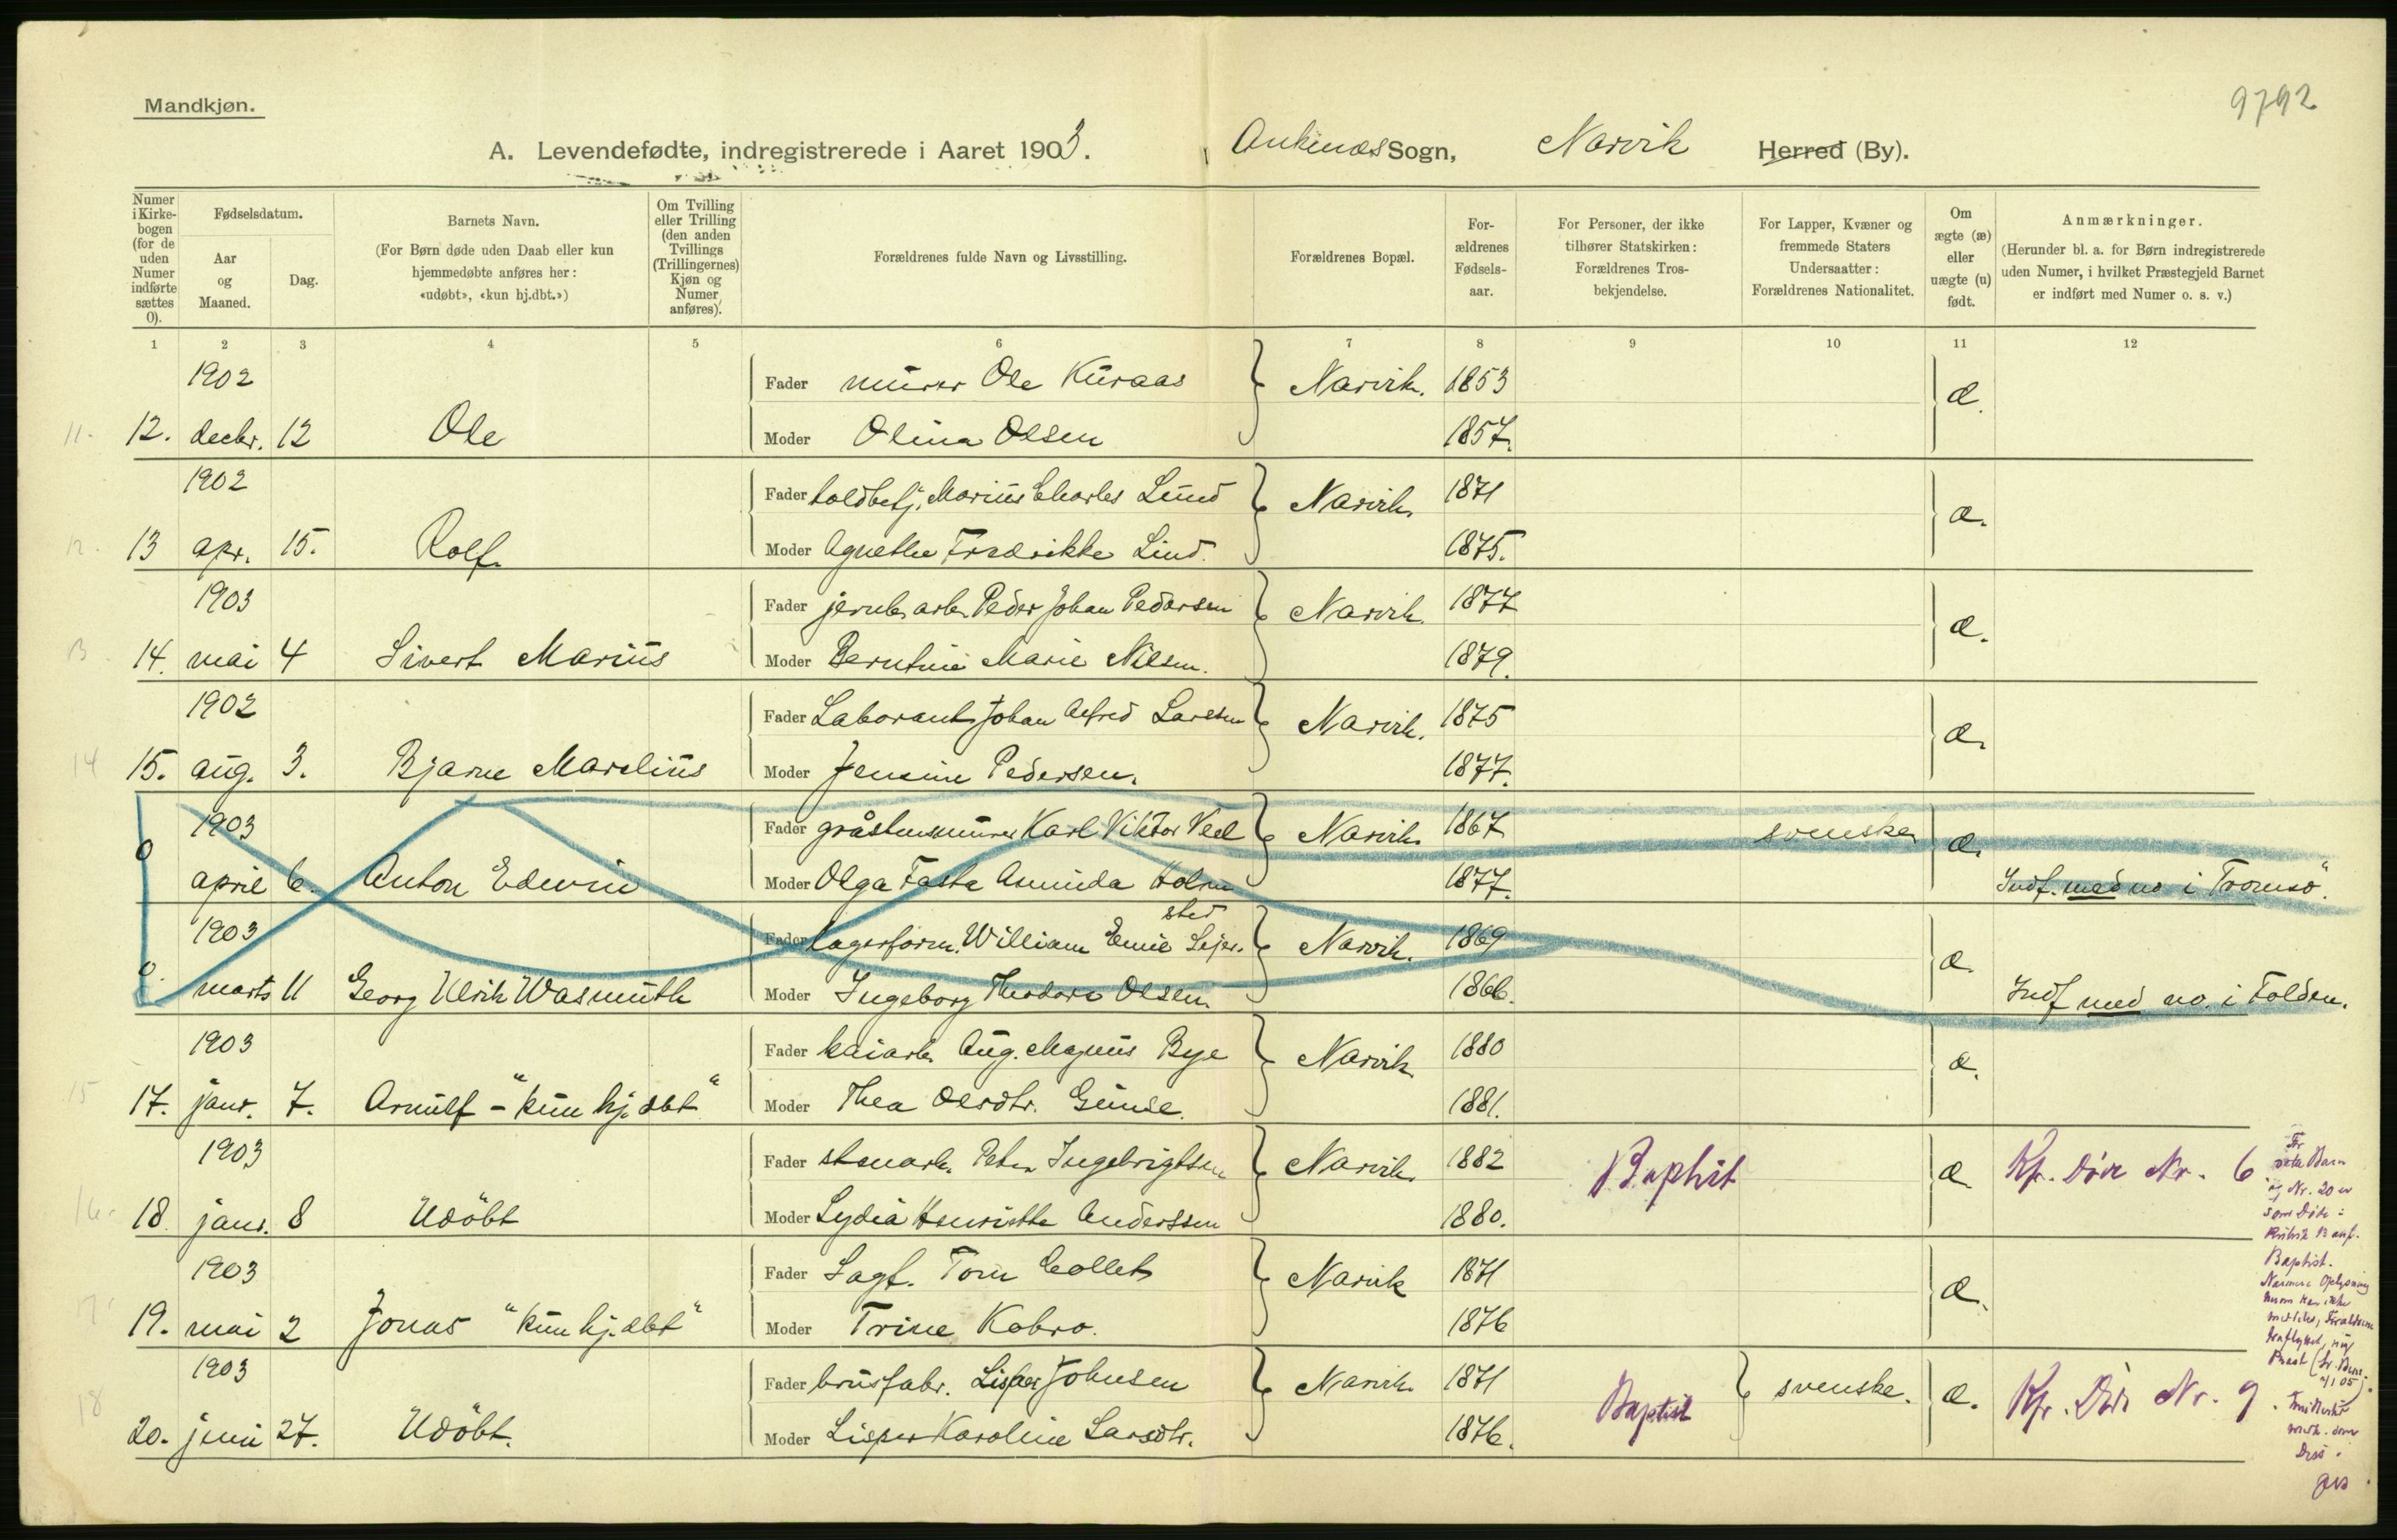 Mandkjøn.
9792
A. Levendefødte, indregistrerede i Aaret 1903. Ankenæs Sogn, Narvik Herred (By).
Numer i Kirkebogen (for de uden Numer indførte sættes 0).
Fødselsdatum.
Aar og Maaned.
Dag.
Barnets Navn.
(For Børn døde uden Daab eller kun hjemmedøbte anføres her: «udøbt», «kun hj.dbt.»)
Om Tvilling eller Trilling (den anden Tvillings (Trillingernes) Kjøn og Numer anføres).
Forældrenes fulde Navn og Livsstilling.
Forældrenes Bopæl.
Forældrenes Fødselsaar.
For Personer, der ikke tilhører Statskirken: Forældrenes Trosbekjendelse.
For Lapper, Kvæner og fremmede Staters Undersaatter: Forældrenes Nationalitet.
Om ægte (æ) eller uægte (u) født.
Anmærkninger.
(Herunder bl. a. for Børn indregistrerede uden Numer, i hvilket Præstegjeld Barnet er indført med Numer o. s. v.)
1 2 3 4 5 6 7 8 9 10 11 12
1902 Fader murer Ole Kuraas Narvik. 1853 æ.
11. 12. decbr. 12 Ole Moder Olina Olsen 1857.
1902 Fader toldbetj. Marius Charles Lund Narvik. 1871 æ.
12. 13 apr. 15. Rolf. Moder Agnethe Fredrikke Lind. 1875.
1903 Fader jernb. arb. Peder Johan Pedersen Narvik. 1877 æ.
13 14. mai 4 Sivert Marius Moder Berntine Marie Nilsen. 1879.
1902 Fader Laborant Johan Alfred Larsen Narvik. 1875 æ.
14 15. aug. 3. Bjarne Marelius Moder Jensine Pedersen. 1877.
1903 Fader gråstensmurer Karl Viktor Narvik. 1867 svenske æ.
0 april 6. Anton Edwin Moder Olga Fasta Asminda Holm 1877. Indf. med no i Tromsö.
1903 Fader Lagerform. William Emil Sejer. sted Narvik. 1869 æ.
0. marts 11 Georg Ulrik Wasmuth Moder Ingeborg Theodora Olsen. 1866. Indf med no. i Folden.
1903 Fader kaiarb. Aug. Magnus Bye Narvik 1880 æ.
15 17. janr. 7. Arnulf - "kun hj. dbt" Moder Thea Olsdtr. 1881.
1903 Fader stenarb. Peter Ingebrigtsen Narvik. 1882 Baptist æ. Kfr. Döde Nr. 6
16. 18. janr. 8 Udöbt Moder Lydia Henriette Anderssen 1880.
1903 Fader Sagf. Tom Collett Narvik 1871 æ.
17 19. mai 2 Jonas "kun hj. dbt" Moder Trine Kobro. 1876
1903 Fader brusfabr. Johnsen Narvik 1871 Baptist svenske. æ. Kfr. Döde Nr. 9.
18 20. juni 27. Udöbt. Moder Lisper Karoline Larsdtr. 1876.
Barn
og Nr. 20 er
som Döde i
Baptist.